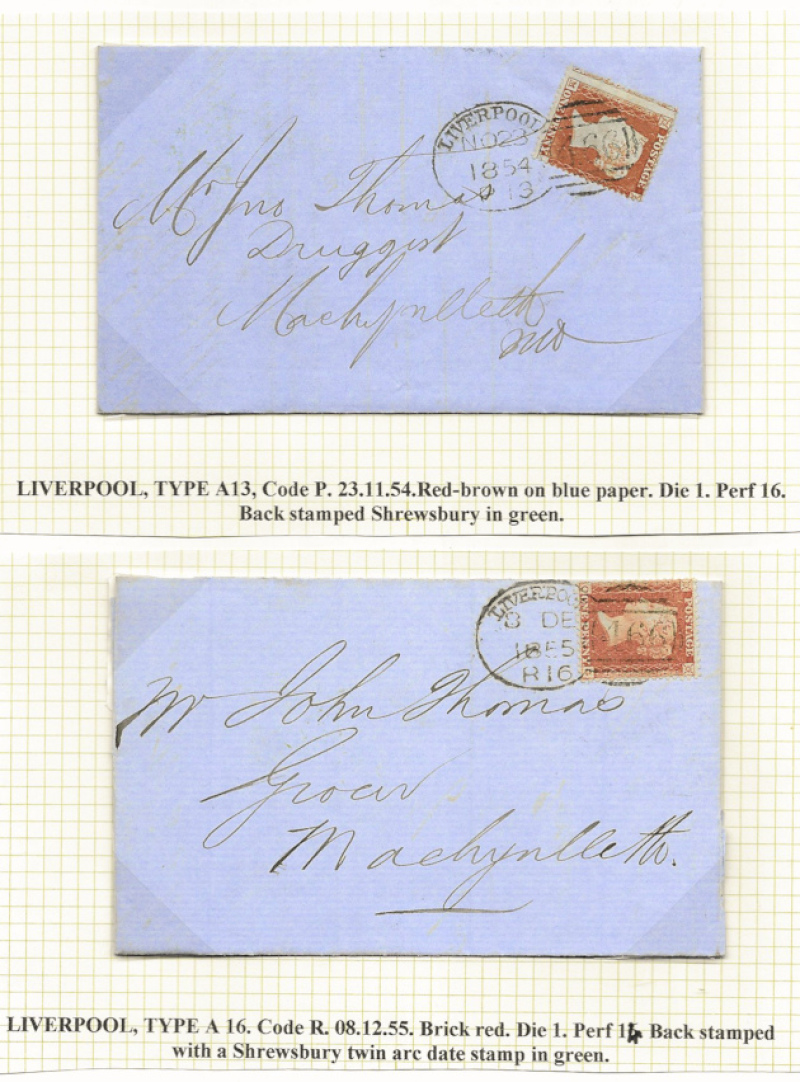 LIVERPOOL
NO23
1854
P 13
POSTAGE
466
Mr Jno Thomas
Druggist
Machynlleth
LIVERPOOL, TYPE A13, Code P. 23.11.54.Red-brown on blue paper. Die 1. Perf 16.
Back stamped Shrewsbury in green.
LIVERPOOL
8 DE
1855
R16
POSTAGE
466
Mr John Thomas
Grocer
Machynlleth.
LIVERPOOL, TYPE A 16. Code R. 08.12.55. Brick red. Die 1. Perf 14 Back stamped
with a Shrewsbury twin arc date stamp in green.